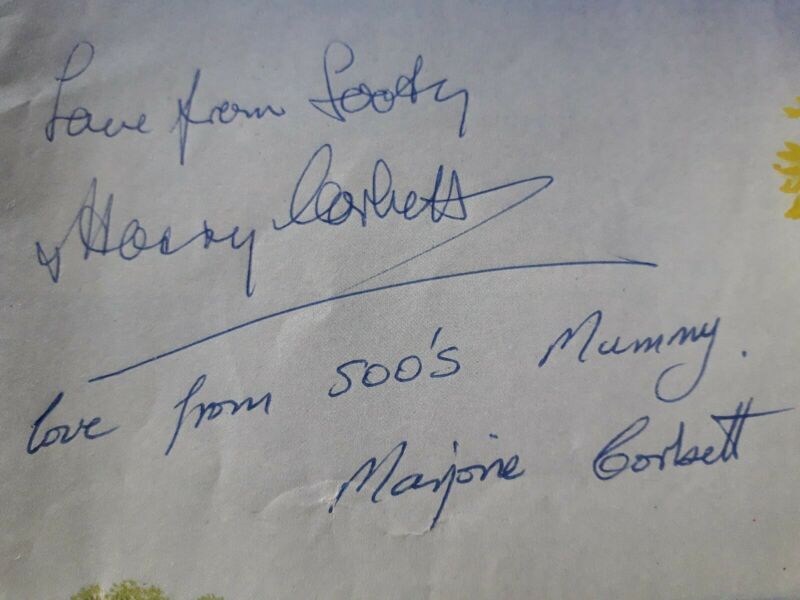 Love from Sooty
& Harry Corbett
love from SOO'S Mummy.
Marjorie Corbett